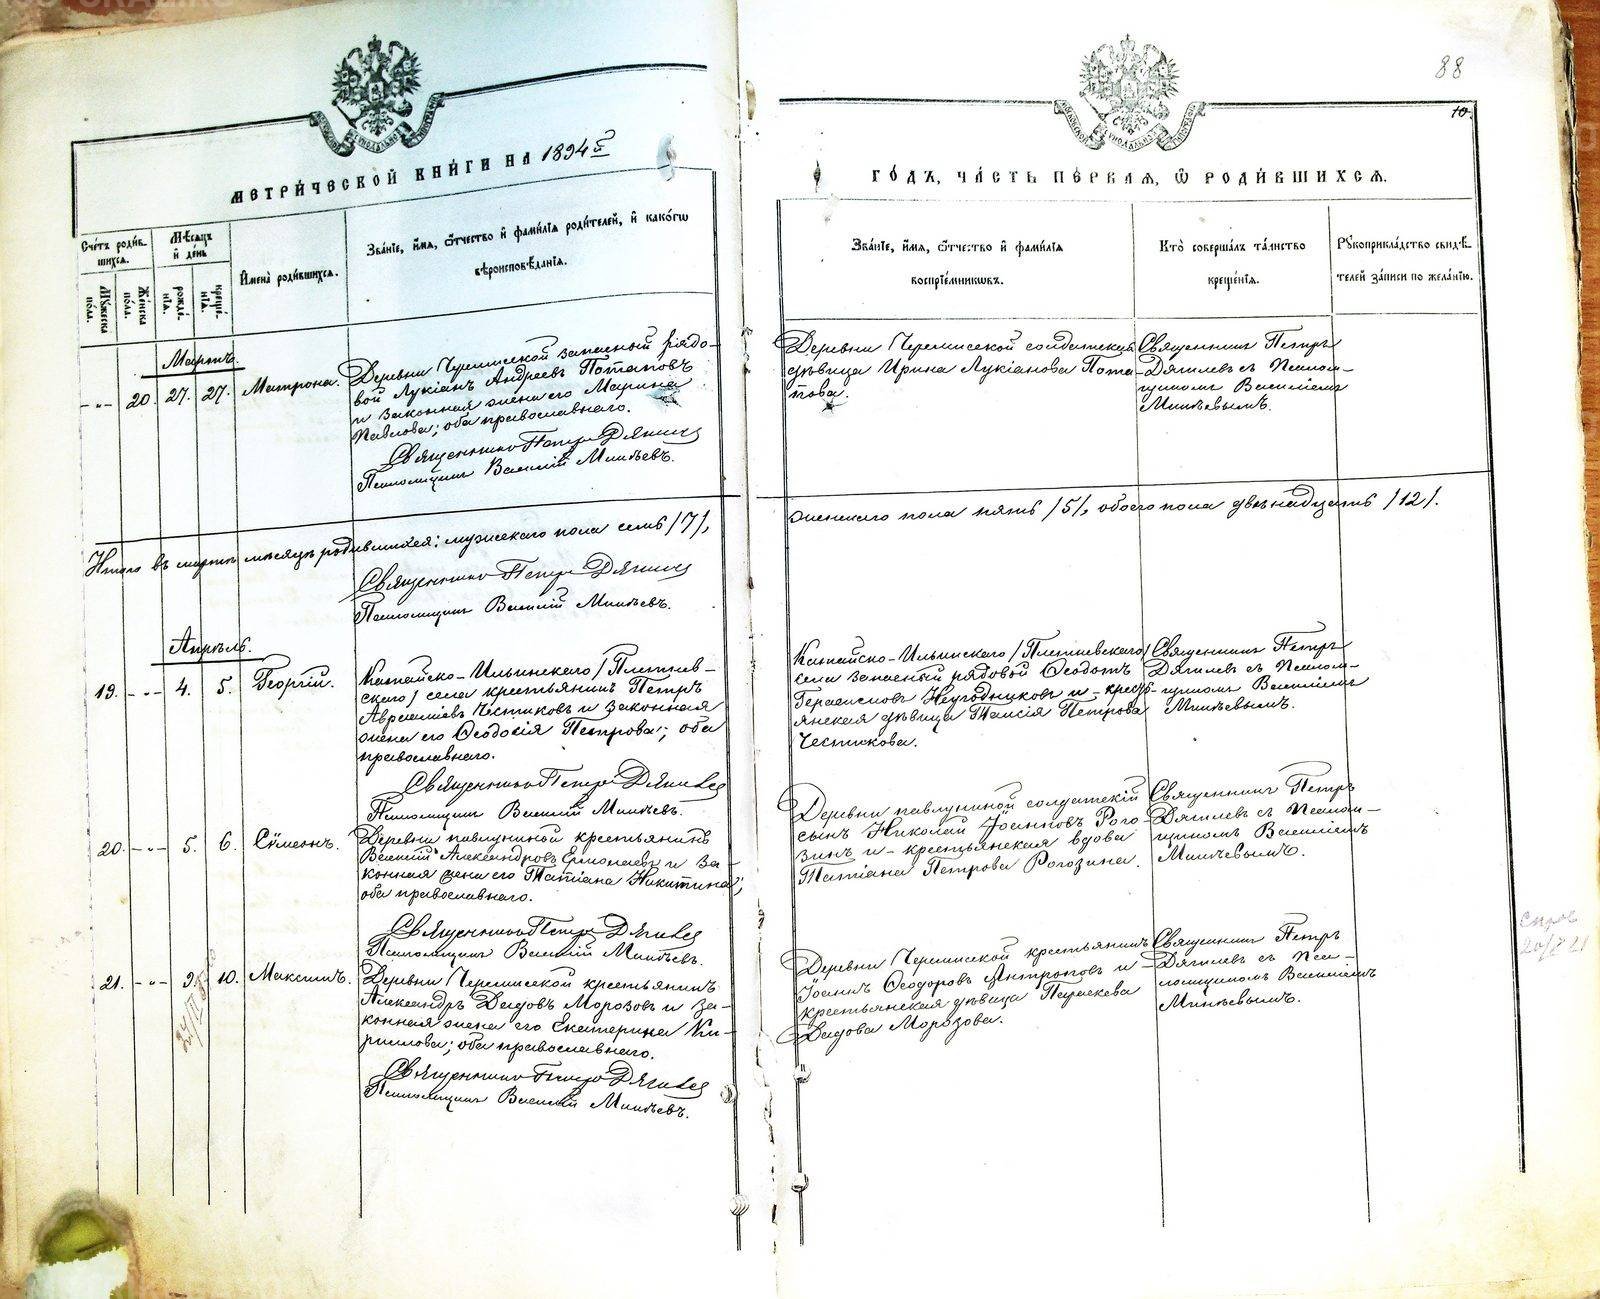 88
10.
МЕТРИ́ЧЕСКОЙ КНИ́ГИ НА 1894й
ГО́ДЪ, ЧА́СТЬ ПЕ́РВАЯ, Ѽ РОДИ́ВШИХСЯ.
Сче́тъ роди́в-
шихся.
Мꙋ́жеска
пола.
Же́нска
пола.
Мѣ́сяцъ
и де́нь
рожде́-
нїя.
креще́-
нїя.
Имена̀ роди́вшихся.
Зва́нїе, и́мя, ѻ́тчество и фами́лїя роди́телей, и како́гѡ
вѣроисповѣ́данїя.
Зва́нїе, и́мя, ѻ́тчество и фами́лїя
воспрїе́мникѡвъ.
Кто̀ соверша́лъ та́инство
креще́нїя.
Рꙋкоприкла́дство свидѣ́-
телей за́писи по жела́нїю.
Мартъ.
-"- 20. 27. 27. Матрона.
Деревни Черемисской запасный рядо-
вой Лукіанъ Андреевъ Потаповъ
и законная жена его Марина
Павлова; оба православнаго.
Священникъ Петръ Дягилевъ
Псаломщикъ Василій Минѣевъ.
Деревни Черемисской солдатская
дѣвица Ирина Лукіанова Пота-
пова.
Священникъ Петръ
Дягилевъ съ Псалом-
щикомъ Василіемъ
Минѣевымъ.
Итого въ мартѣ мѣсяцѣ родившихся: мужескаго пола семь /7/,
женскаго пола пять /5/, обоего пола двѣнадцать /12/.
Священникъ Петръ Дягилевъ
Псаломщикъ Василій Минѣевъ.
Апрѣль.
19. -"- 4. 5. Георгій.
Катайско-Ильинскаго /Плетнев-
скаго/ села крестьянинъ Петръ
Чистиковъ и законная
жена его Ѳеодосія Петрова; оба
православнаго.
Священникъ Петръ Дягилевъ
Псаломщикъ Василій Минѣевъ.
Катайско-Ильинскаго /Плетневскаго/
села запасный рядовой Ѳеодотъ
Герасимовъ Неугодниковъ и - кресть-
янская дѣвица Таисія Петрова
Чистикова.
Священникъ Петръ
Дягилевъ съ Псалом-
щикомъ Василіемъ
Минѣевымъ.
20. -"- 5. 6. Сѵмеонъ.
Деревни Павлуниной крестьянинъ
Василій Александровъ Ермолаевъ и за-
конная жена его Татіана Никитина;
оба православнаго.
Священникъ Петръ Дягилевъ
Псаломщикъ Василій Минѣевъ.
Деревни Павлуниной солдатскій
сынъ Николай Іоанновъ Рого-
зинъ и - крестьянская вдова
Татіана Петрова Рогозина.
Священникъ Петръ
Дягилевъ съ Псалом-
щикомъ Василіемъ
Минѣевымъ.
21. -"- 9. 10. Максимъ.
Деревни Черемисской крестьянинъ
Александръ Давидовъ Морозовъ и за-
конная жена его Екатерина Ки-
риллова; оба православнаго.
Священникъ Петръ Дягилевъ
Псаломщикъ Василій Минѣевъ.
Деревни Черемисской крестьянинъ
Іоаннъ Ѳеодоровъ Антроповъ и -
крестьянская дѣвица Параскева
Давидова Морозова.
Священникъ Петръ
Дягилевъ съ Пса-
ломщикомъ Василіемъ
Минѣевымъ.